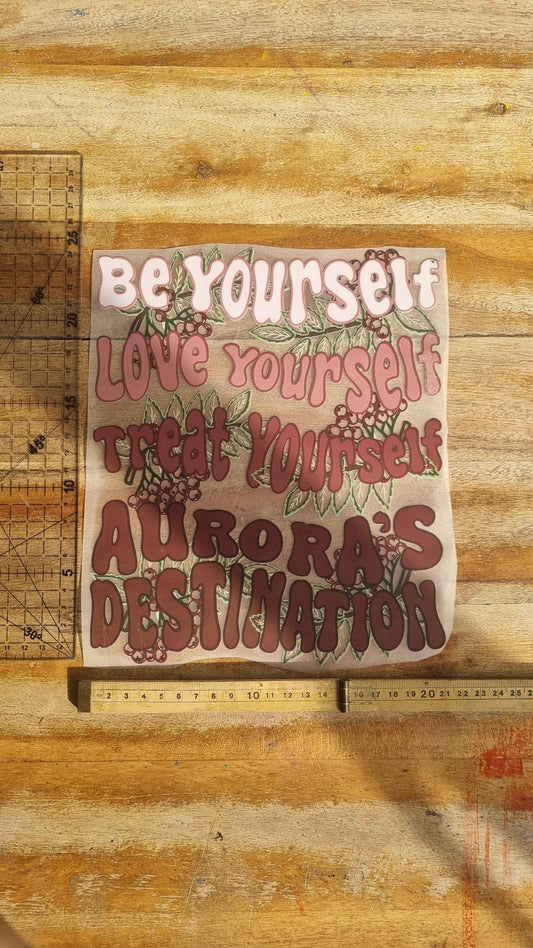 Be Yourself
Love Yourself
Treat Yourself
Aurora's
Destination
25
20
15
10
5
60°
45°
30°
2 3 4 5 6 7 8 9 10 11 12 13 14 16 17 18 19 20 21 22 23 24 25